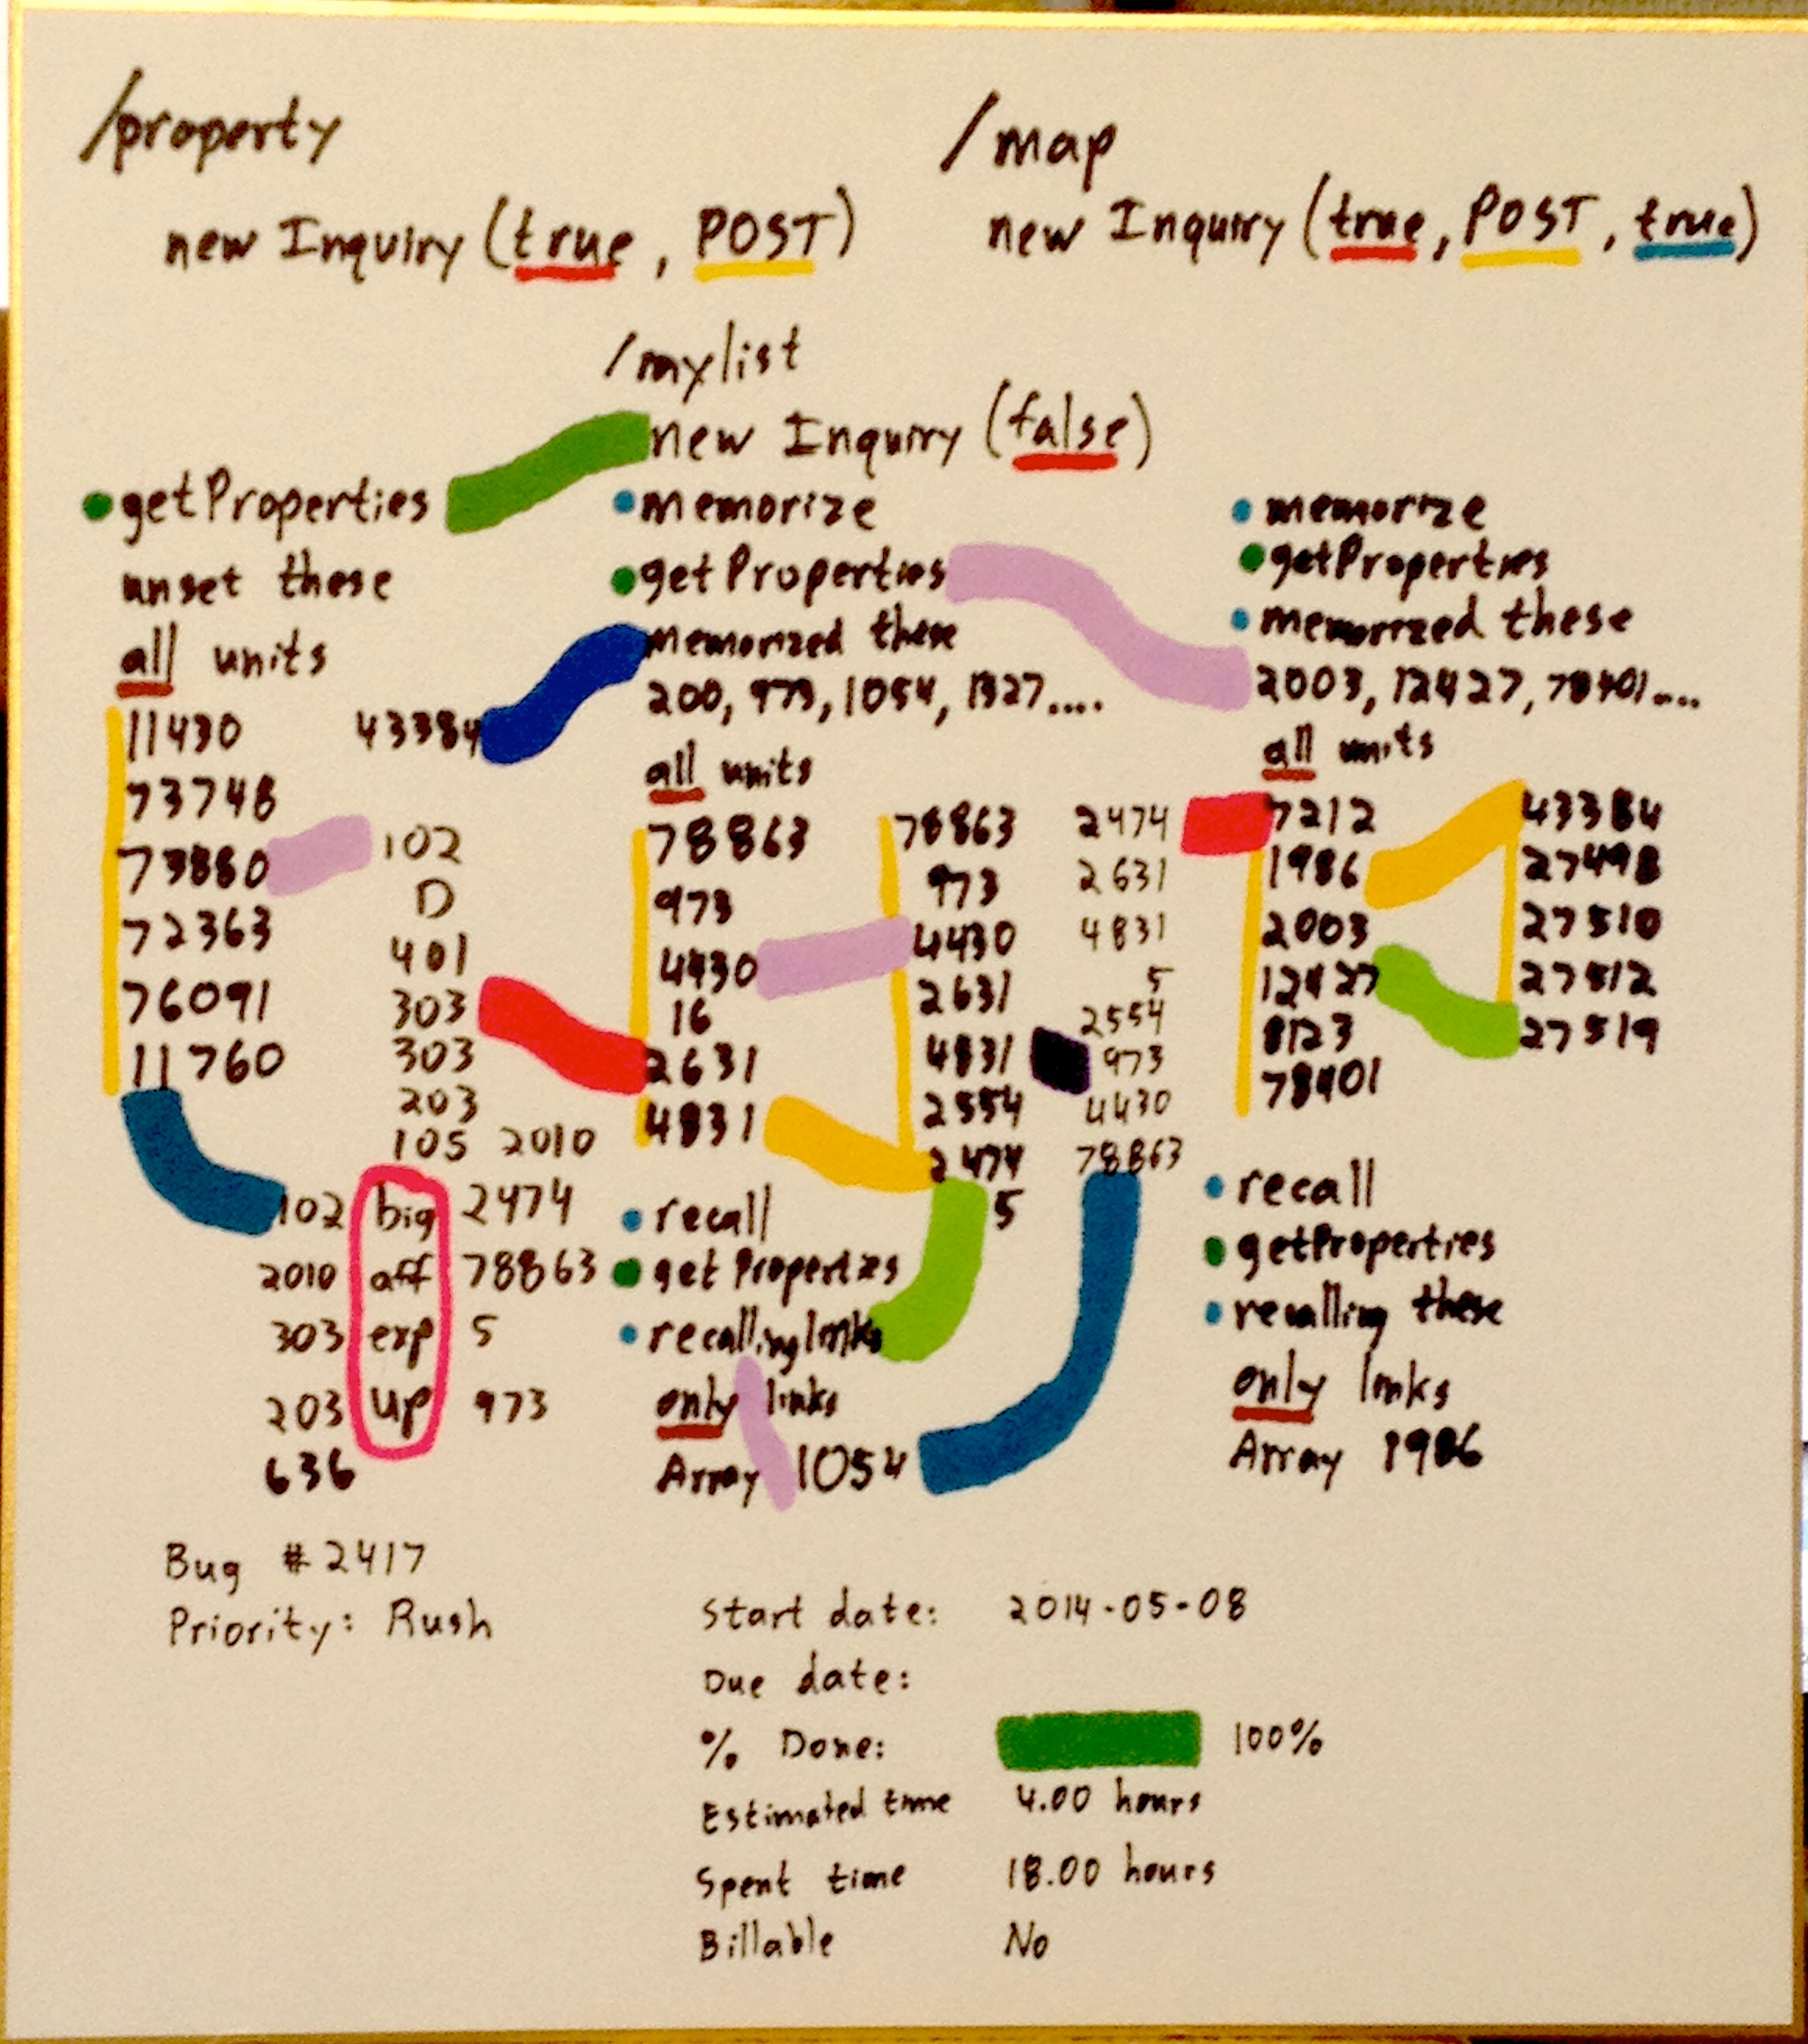 /property
new Inquiry (true, POST)
/map
new Inquiry (true, POST, true)
/mylist
new Inquiry (false)
getProperties
unset these
all units
11430
73748
73880
72363
76091
11760
43384
102
D
401
303
303
203
105 2010
102 big 2474
2010 aff 78863
303 exp 5
203 up 973
636
memorize
getProperties
memorized these
200, 973, 1054, 1327....
all units
78863
973
4430
16
2631
4831
78863
973
4430
2631
4831
2554
2474
5
2474
2631
4831
5
2554
973
4430
78863
recall
getProperties
recalling links
only links
Array 1054
memorize
getProperties
memorized these
2003, 12427, 78401....
all units
7212
1986
2003
12427
8123
78401
43384
27498
27510
27512
27519
recall
getProperties
recalling these
only links
Array 1986
Bug #2417
Priority: Rush
Start date: 2014-05-08
Due date:
% Done: 100%
Estimated time 4.00 hours
Spent time 18.00 hours
Billable No